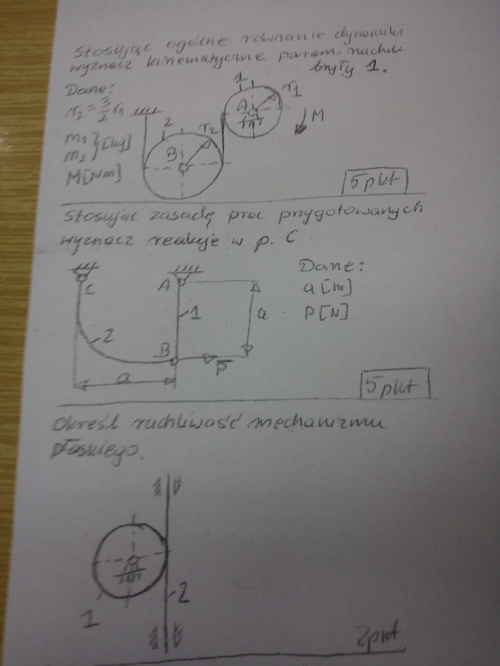 Stosując ogólne równanie dynamiki
wyznacz kinematyczne param. ruchu
bryły 1.
Dane:
r₂ = 3/2 r₁
m₁
m₂ } [kg]
M [Nm]
1
A
r₁
M
2
r₂
B
5pkt
Stosując zasadę prac przygotowanych
wyznacz reakcję w p. C
Dane:
a [m]
P [N]
C
A
1
a
2
B
P
a
5pkt
Określ ruchliwość mechanizmu
płaskiego.
1
2
2pkt